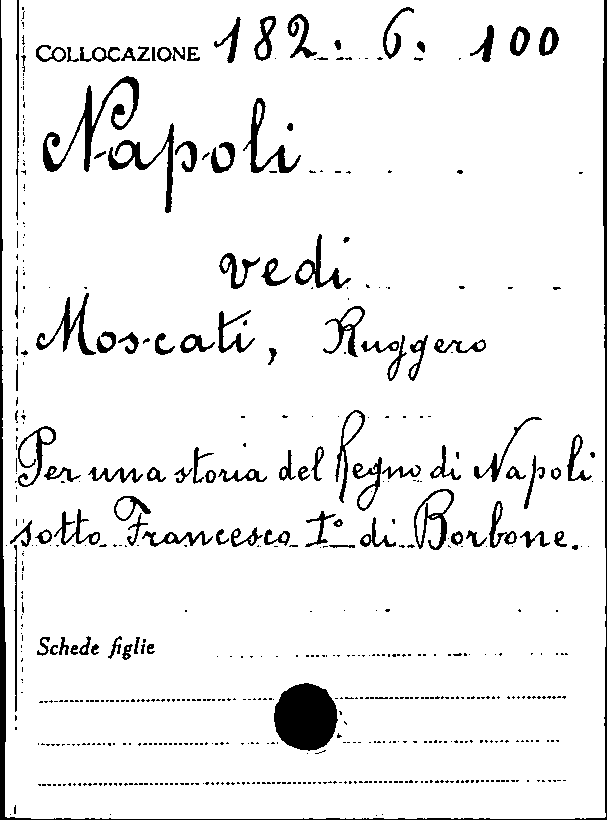 COLLOCAZIONE 182. 6. 100
Napoli
vedi
Moscati, Ruggero
Per una storia del Regno di Napoli
sotto Francesco I° di Borbone.
Schede figlie